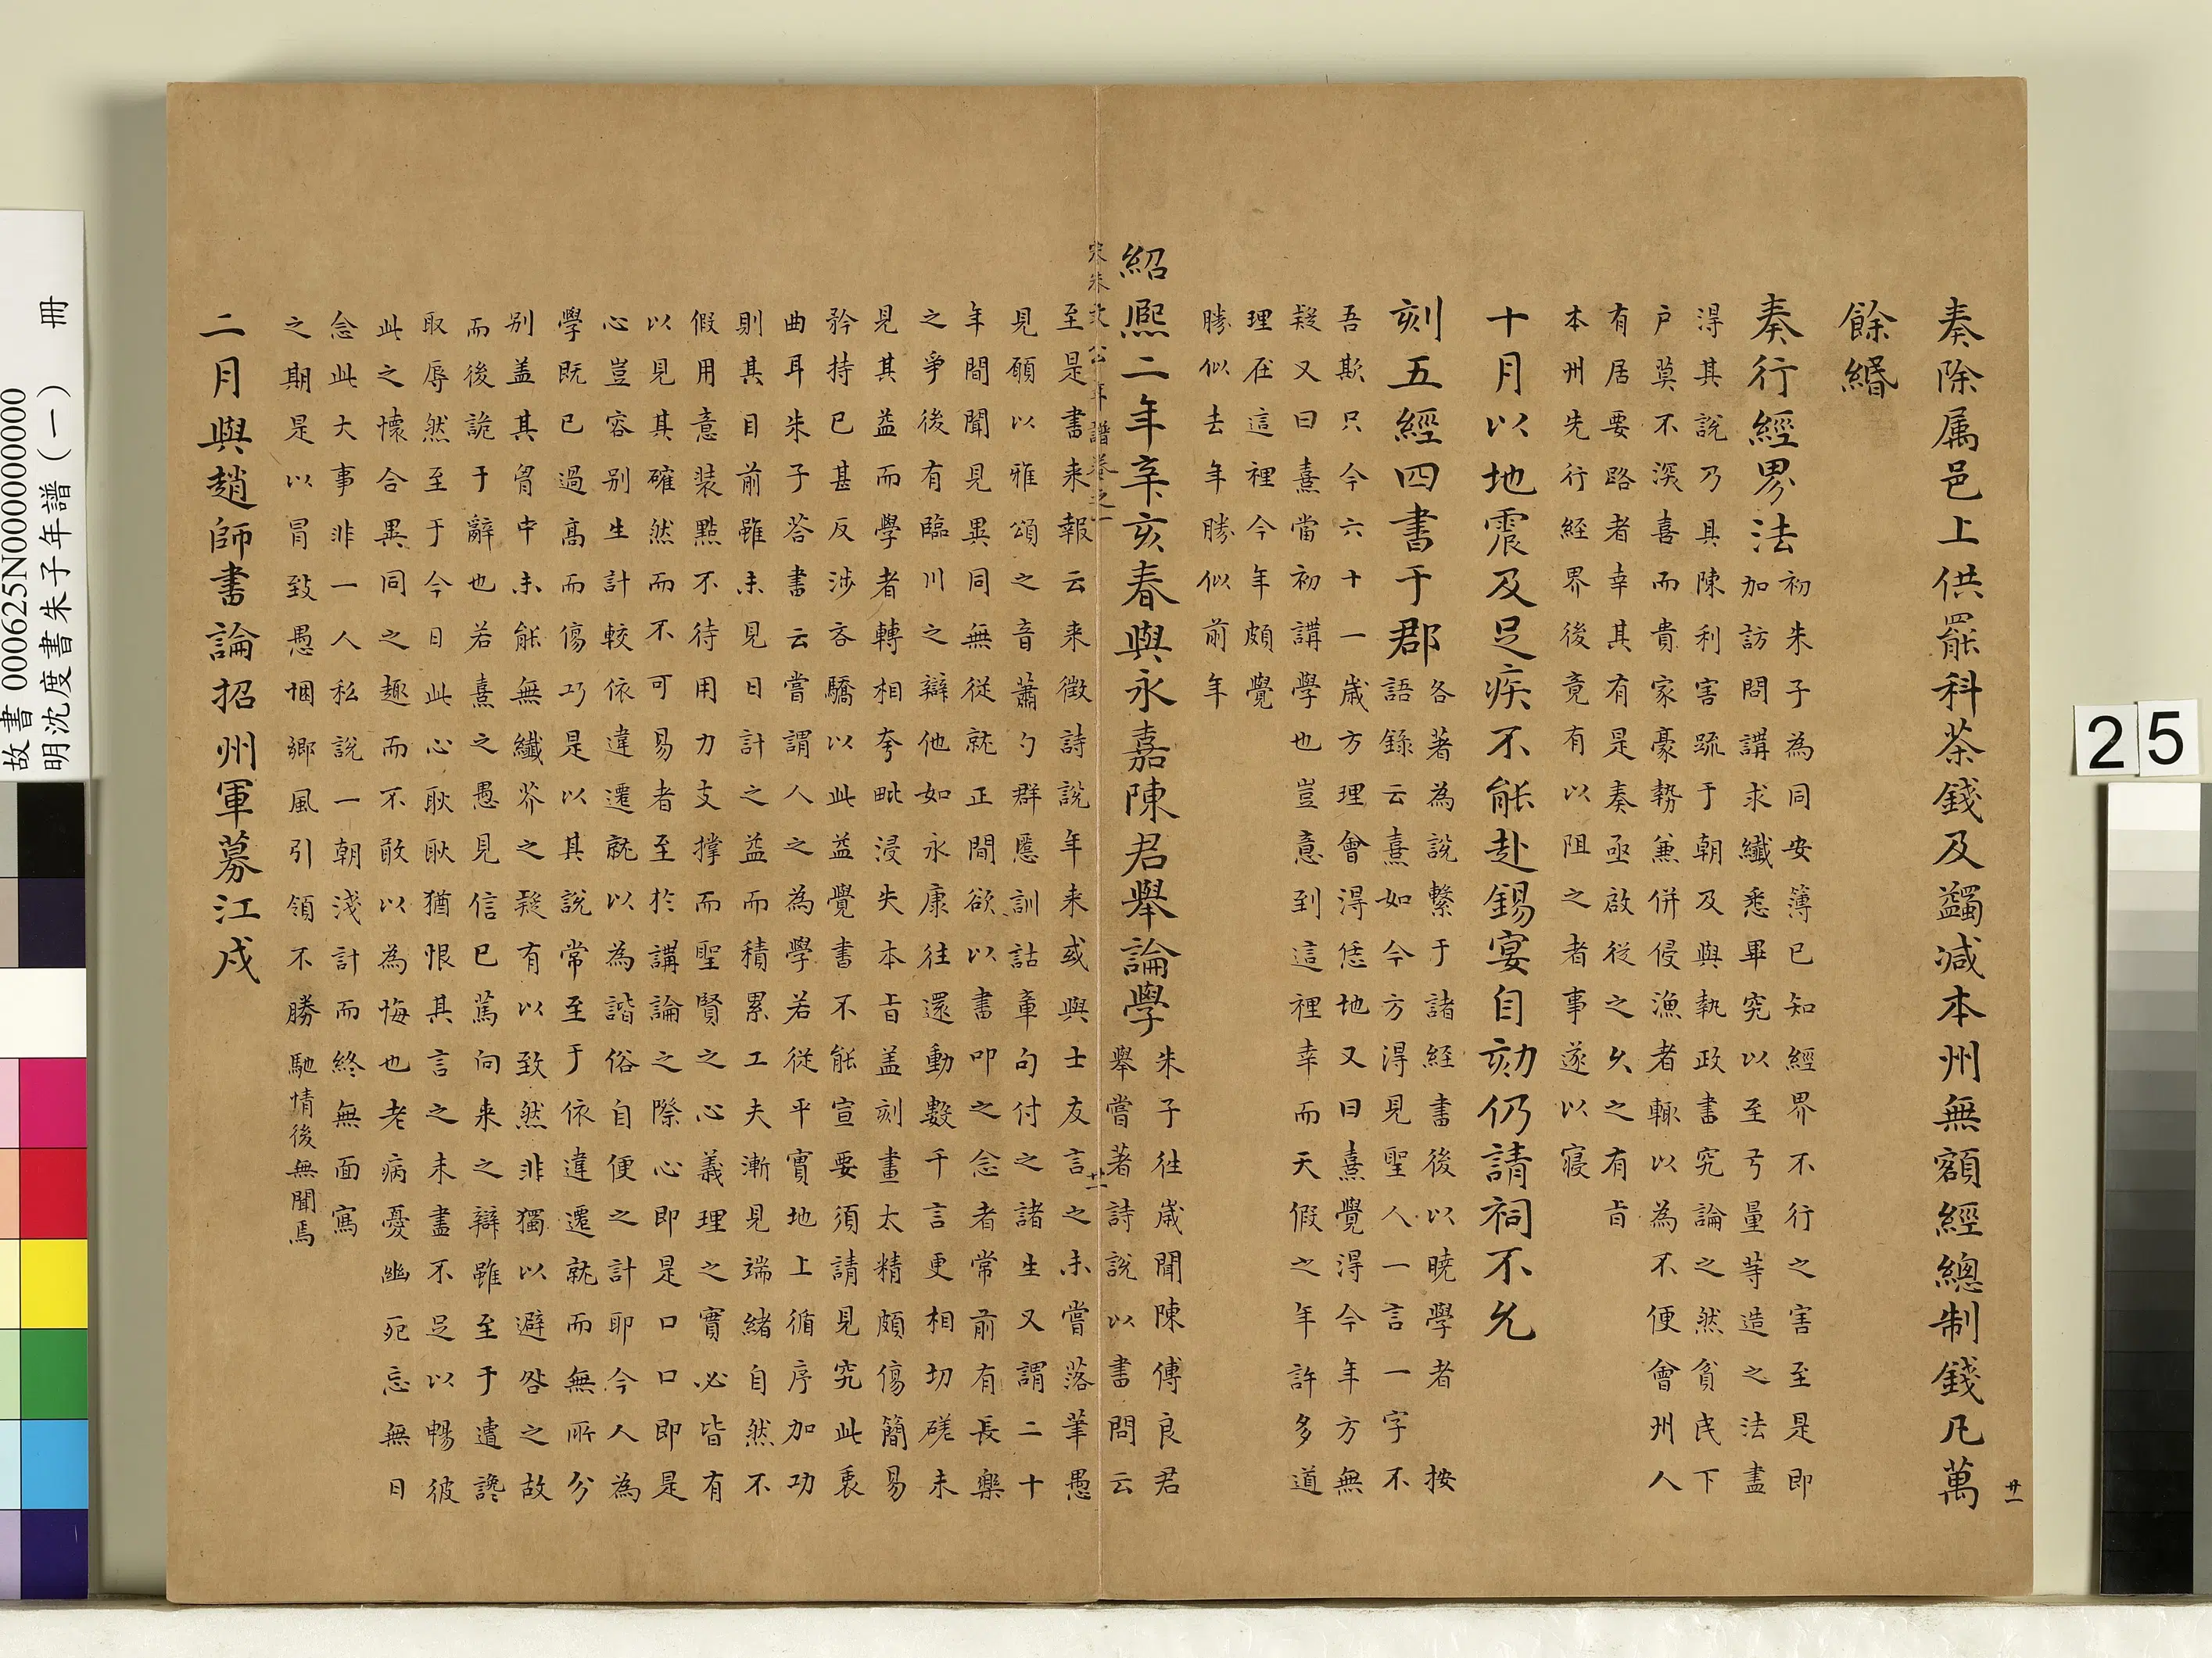 奏除属邑上供罷科茶錢及蠲減本州無額經總制錢凡萬
餘緡
奏行經界法
初朱子為同安簿已知經界不行之害至是即
加訪問講求纖悉畢究以至弓量等造之法盡
得其說乃具陳利害疏于朝及與執政書究論之然貧民下
户莫不深喜而貴家豪勢兼併侵漁者輙以為不便會州人
有居要路者幸其有是奏亟啟從之久之有旨
本州先行経界後竟有以阻之者事遂以寢
十月以地震及足疾不能赴錫宴自劾仍請祠不允
刻五經四書于郡
各著為說繫于諸経書後以曉學者 按
語錄云熹如今方得見聖人一言一字不
吾欺只今六十一歲方理會得恁地又曰熹覺得今年方無
疑又曰熹當初講學也豈意到這裡幸而天假之年許多道
理在這裡今年頗覺
勝似去年勝似前年
紹熙二年辛亥春與永嘉陳君舉論學
朱子往歲聞陳傅良君
舉嘗著詩說以書問云
至是書来報云来徵詩説年来或與士友言之未嘗落筆愚
見願以雅頌之音蕭勺群慝訓詁章句付之諸生又謂二十
年間聞見異同無從就正間欲以書叩之念者常前有長樂
之爭後有臨川之辯他如永康往還動數千言更相切磋未
見其益而學者轉相夸毗浸失本旨盖刻畫太精頗傷簡易
矜持已甚反渉吝驕以此益覺書不能宣要須請見究此衷
曲耳朱子答書云嘗謂人之為學若從平實地上循序加功
則其目前雖未見日計之益而積累工夫漸見端緒自然不
假用意装點不待用力支撐而聖賢之心義理之實必皆有
以見其確然而不可易者至於講論之際心即是口口即是
心豈容别生計較依違遷就以為諧俗自便之計耶今人為
學既已過高而傷巧是以其説常至于依違遷就而無所分
别盖其胷中未能無纖芥之疑有以致然非獨以避咎之故
而後詭于辭也若熹之愚見信已篤向来之辯雖至于遣讒
取辱然至于今日此心耿耿猶恨其言之未盡不足以暢彼
此之懷合異同之趣而不敢以為悔也老病憂幽死忘無日
念此大事非一人私説一朝淺計而終無面寫
之期是以冐致愚悃鄉風引領不勝馳情後無聞焉
二月與趙師書論招州軍募江戍
宋朱文公年譜卷之一
廿一
廿一
25
故書 000625N000000000
明沈度書朱子年譜(一) 冊